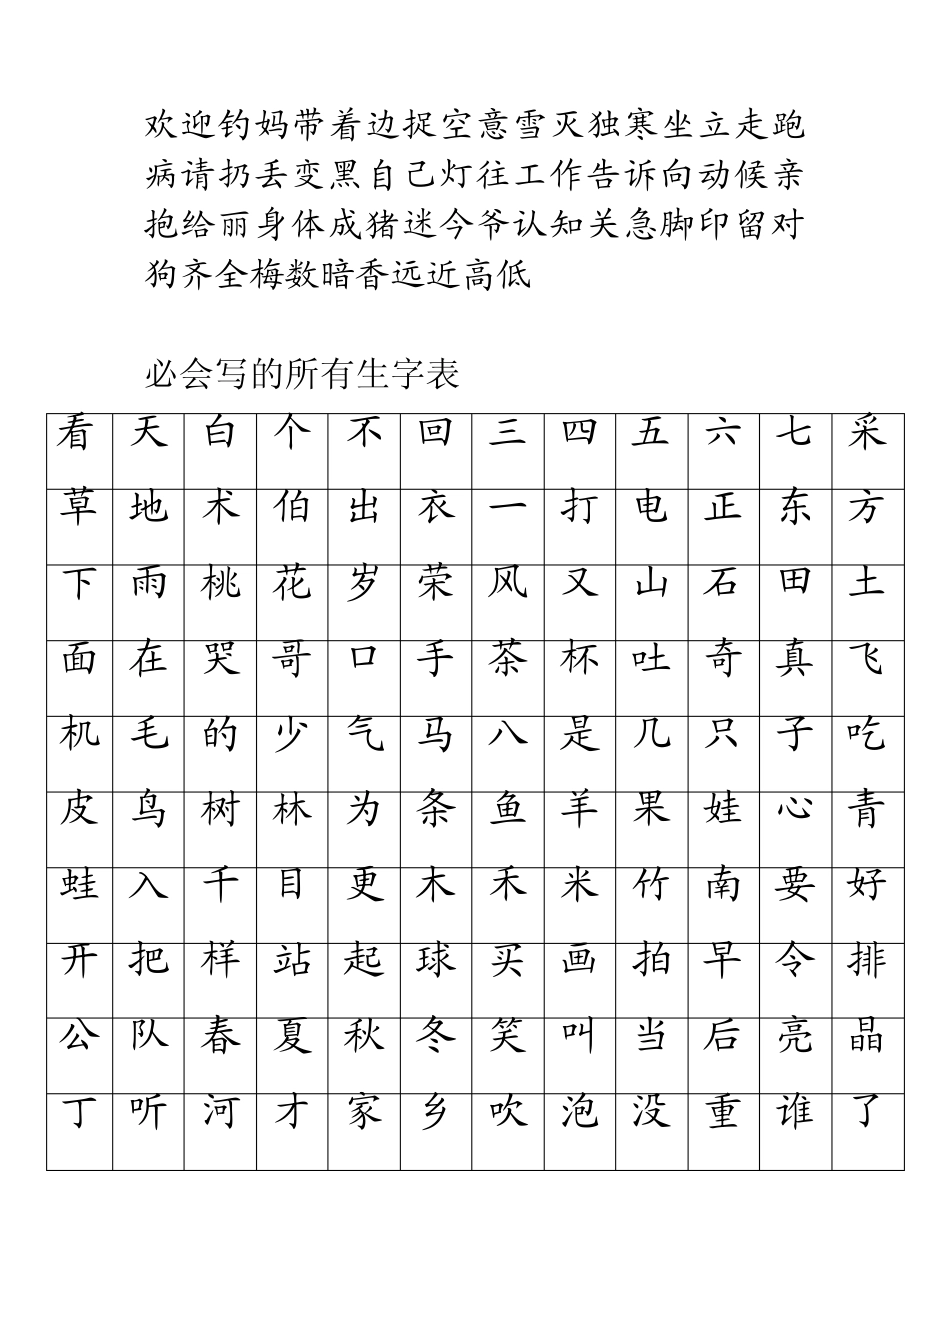 欢迎钓妈带着边捉空意雪灭独寒坐立走跑
病请扔丢变黑自己灯往工作告诉向动候亲
抱给丽身体成猪迷今爷认知关急脚印留对
狗齐全梅数暗香远近高低
必会写的所有生字表
看 天 白 个 不 回 三 四 五 六 七 采
草 地 术 伯 出 衣 一 打 电 正 东 方
下 雨 桃 花 岁 荣 风 又 山 石 田 土
面 在 哭 哥 口 手 茶 杯 吐 奇 真 飞
机 毛 的 少 气 马 八 是 几 只 子 吃
皮 鸟 树 林 为 条 鱼 羊 果 娃 心 青
蛙 入 千 目 更 木 禾 米 竹 南 要 好
开 把 样 站 起 球 买 画 拍 早 令 排
公 队 春 夏 秋 冬 笑 叫 当 后 亮 晶
丁 听 河 才 家 乡 吹 泡 没 重 谁 了